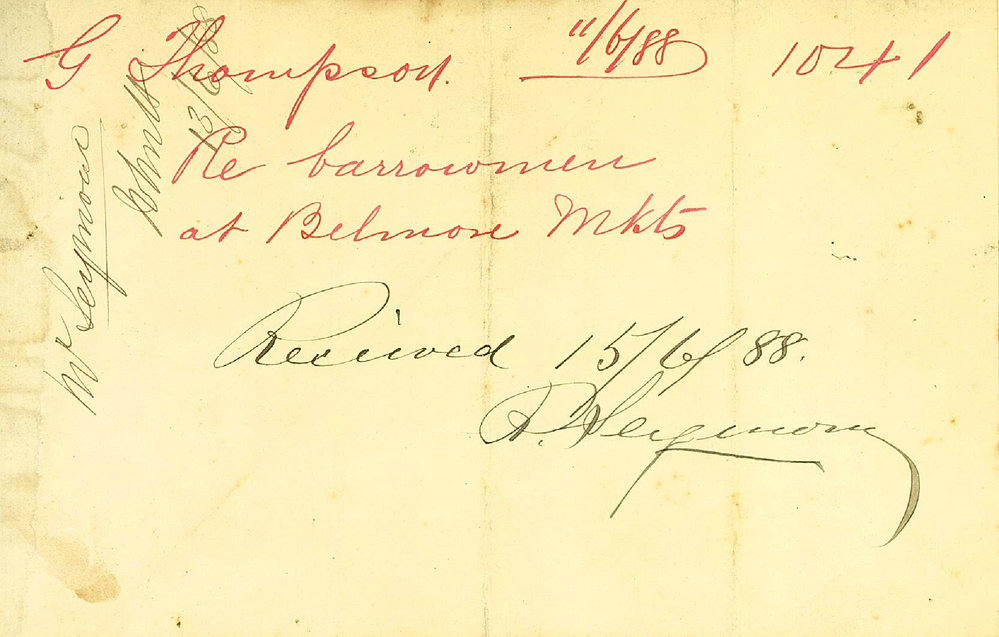 G Thompson. 11/6/88 1041
Re barrowmen
at Belmore Mkts
Received 15/6/88.
R. Seymour
Mr Seymour
13/6/88